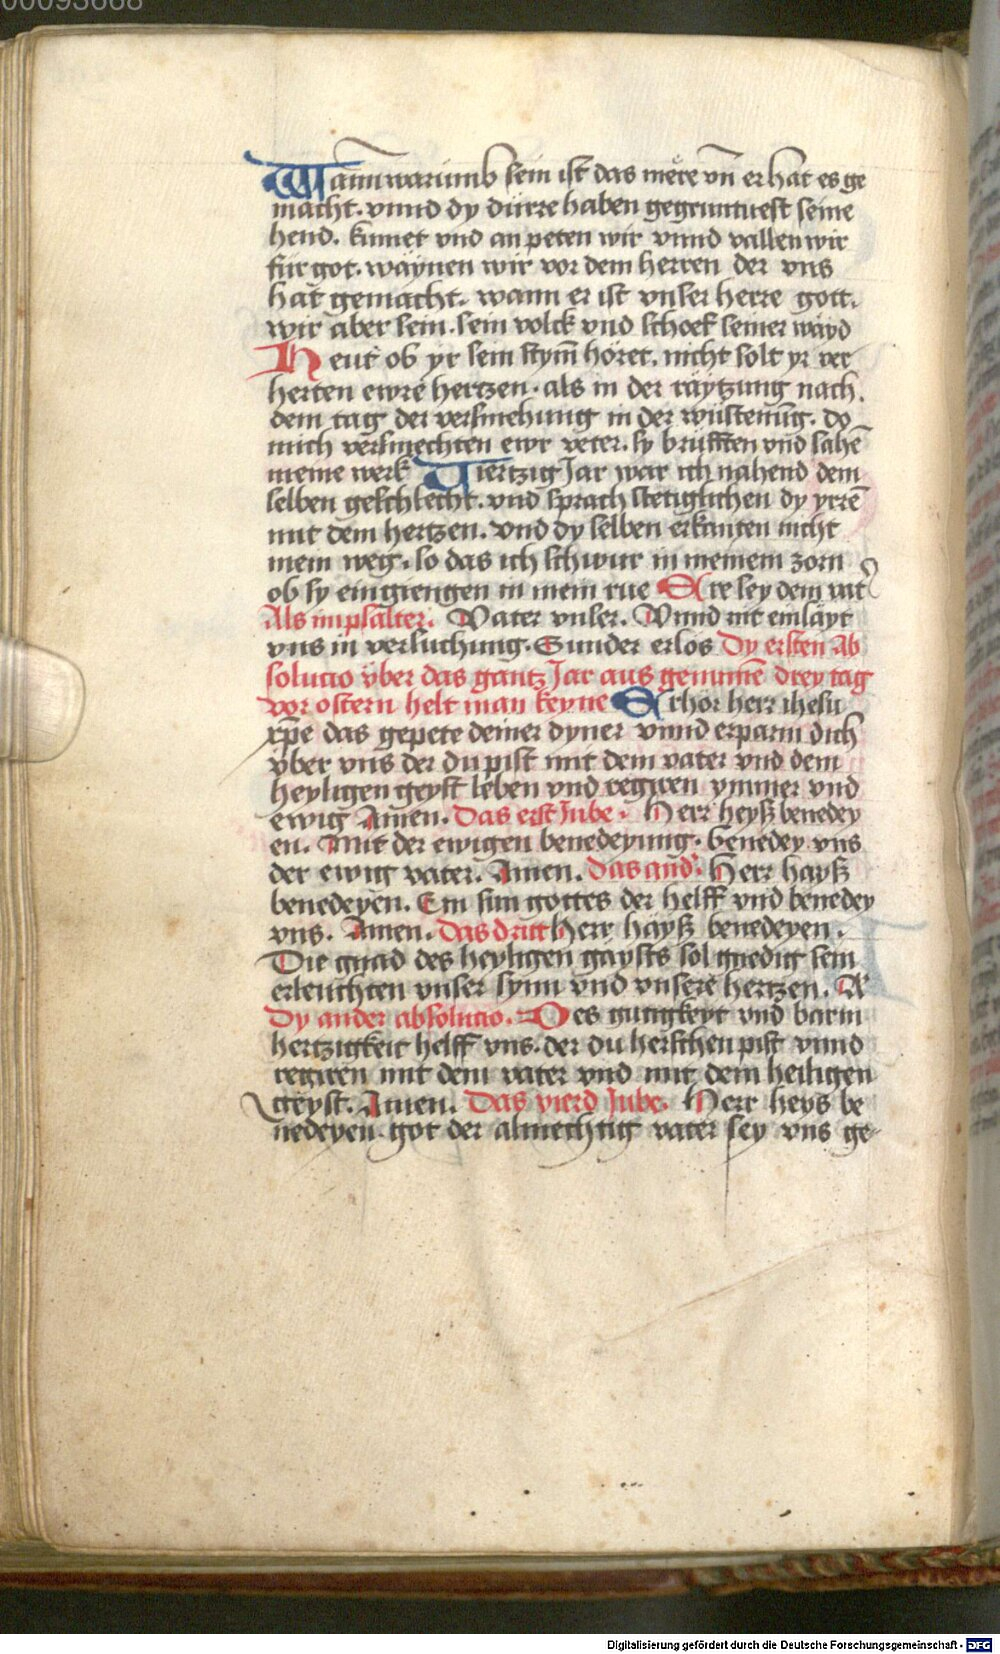 00093668
Wann warumb sein ist das mere vn̄ er hat es ge
macht. vnnd dy dürre haben gegruntuest seine
hend. kumet vnd an peten wir vnnd vallen wir
für got. waynen wir vor dem herren der vns
hat gemacht. wann er ist vnser herre gott.
wir aber sein. sein volck vnd schoef seiner wayd
Heut ob yr sein stym̄ höret. nicht solt yr ver
herten ewre hertzen. als in der raytzung nach
dem tag der versmehung in der wüstenūg. do
mich versmechten ewr veter. sy brufften vnd sahē
meine werk Viertzig Jar war ich nahend dem
selben geschlecht. vnd sprach stetiglichen dy yrrē
mit dem hertzen. vnd dy selben erkanten nicht
mein weg. so das ich schwur in meinem zorn
ob sy eingiengen in mein rue Ere sey dem vat
Als im psalter. Vater vnser. Vnnd nit einläyt
vns in versuchung. Sunder erlos Dy ersten Ab
solucio vber das gantz Jar aus genumē drey tag
vor ostern helt man keyne Erhör herr ihesu
xp̄e das gepete deiner dyner vnnd erparm dich
vber vns der du pist mit dem vater vnd dem
heyligen geyst leben vnd regiren ymmer vnd
ewig Amen. Das erst Jube. Herr heyß benedey
en. Mit der ewigen benedeyung. benedey vns
der ewig vater. Amen. Das and̕. Herr hayß
benedeyen. Ein sun gottes der helff vnd benedey
vns. Amen. Das dritt Herr häyß benedeyen.
Die gnad des heyligen gaysts sol gnedig sein
erleuchten vnser synn vnd vnsere hertzen. A
Dy ander absolucio. Des gutigkeyt vnd barm
hertzigkeit helff vns. der du herschen pist vnnd
regiren mit dem vater vnd mit dem heiligen
geyst. Amen. Das vierd Jube. Herr heys be
nedeyen. got der almechtig vater sey vns ge
Digitalisierung gefördert durch die Deutsche Forschungsgemeinschaft - DFG